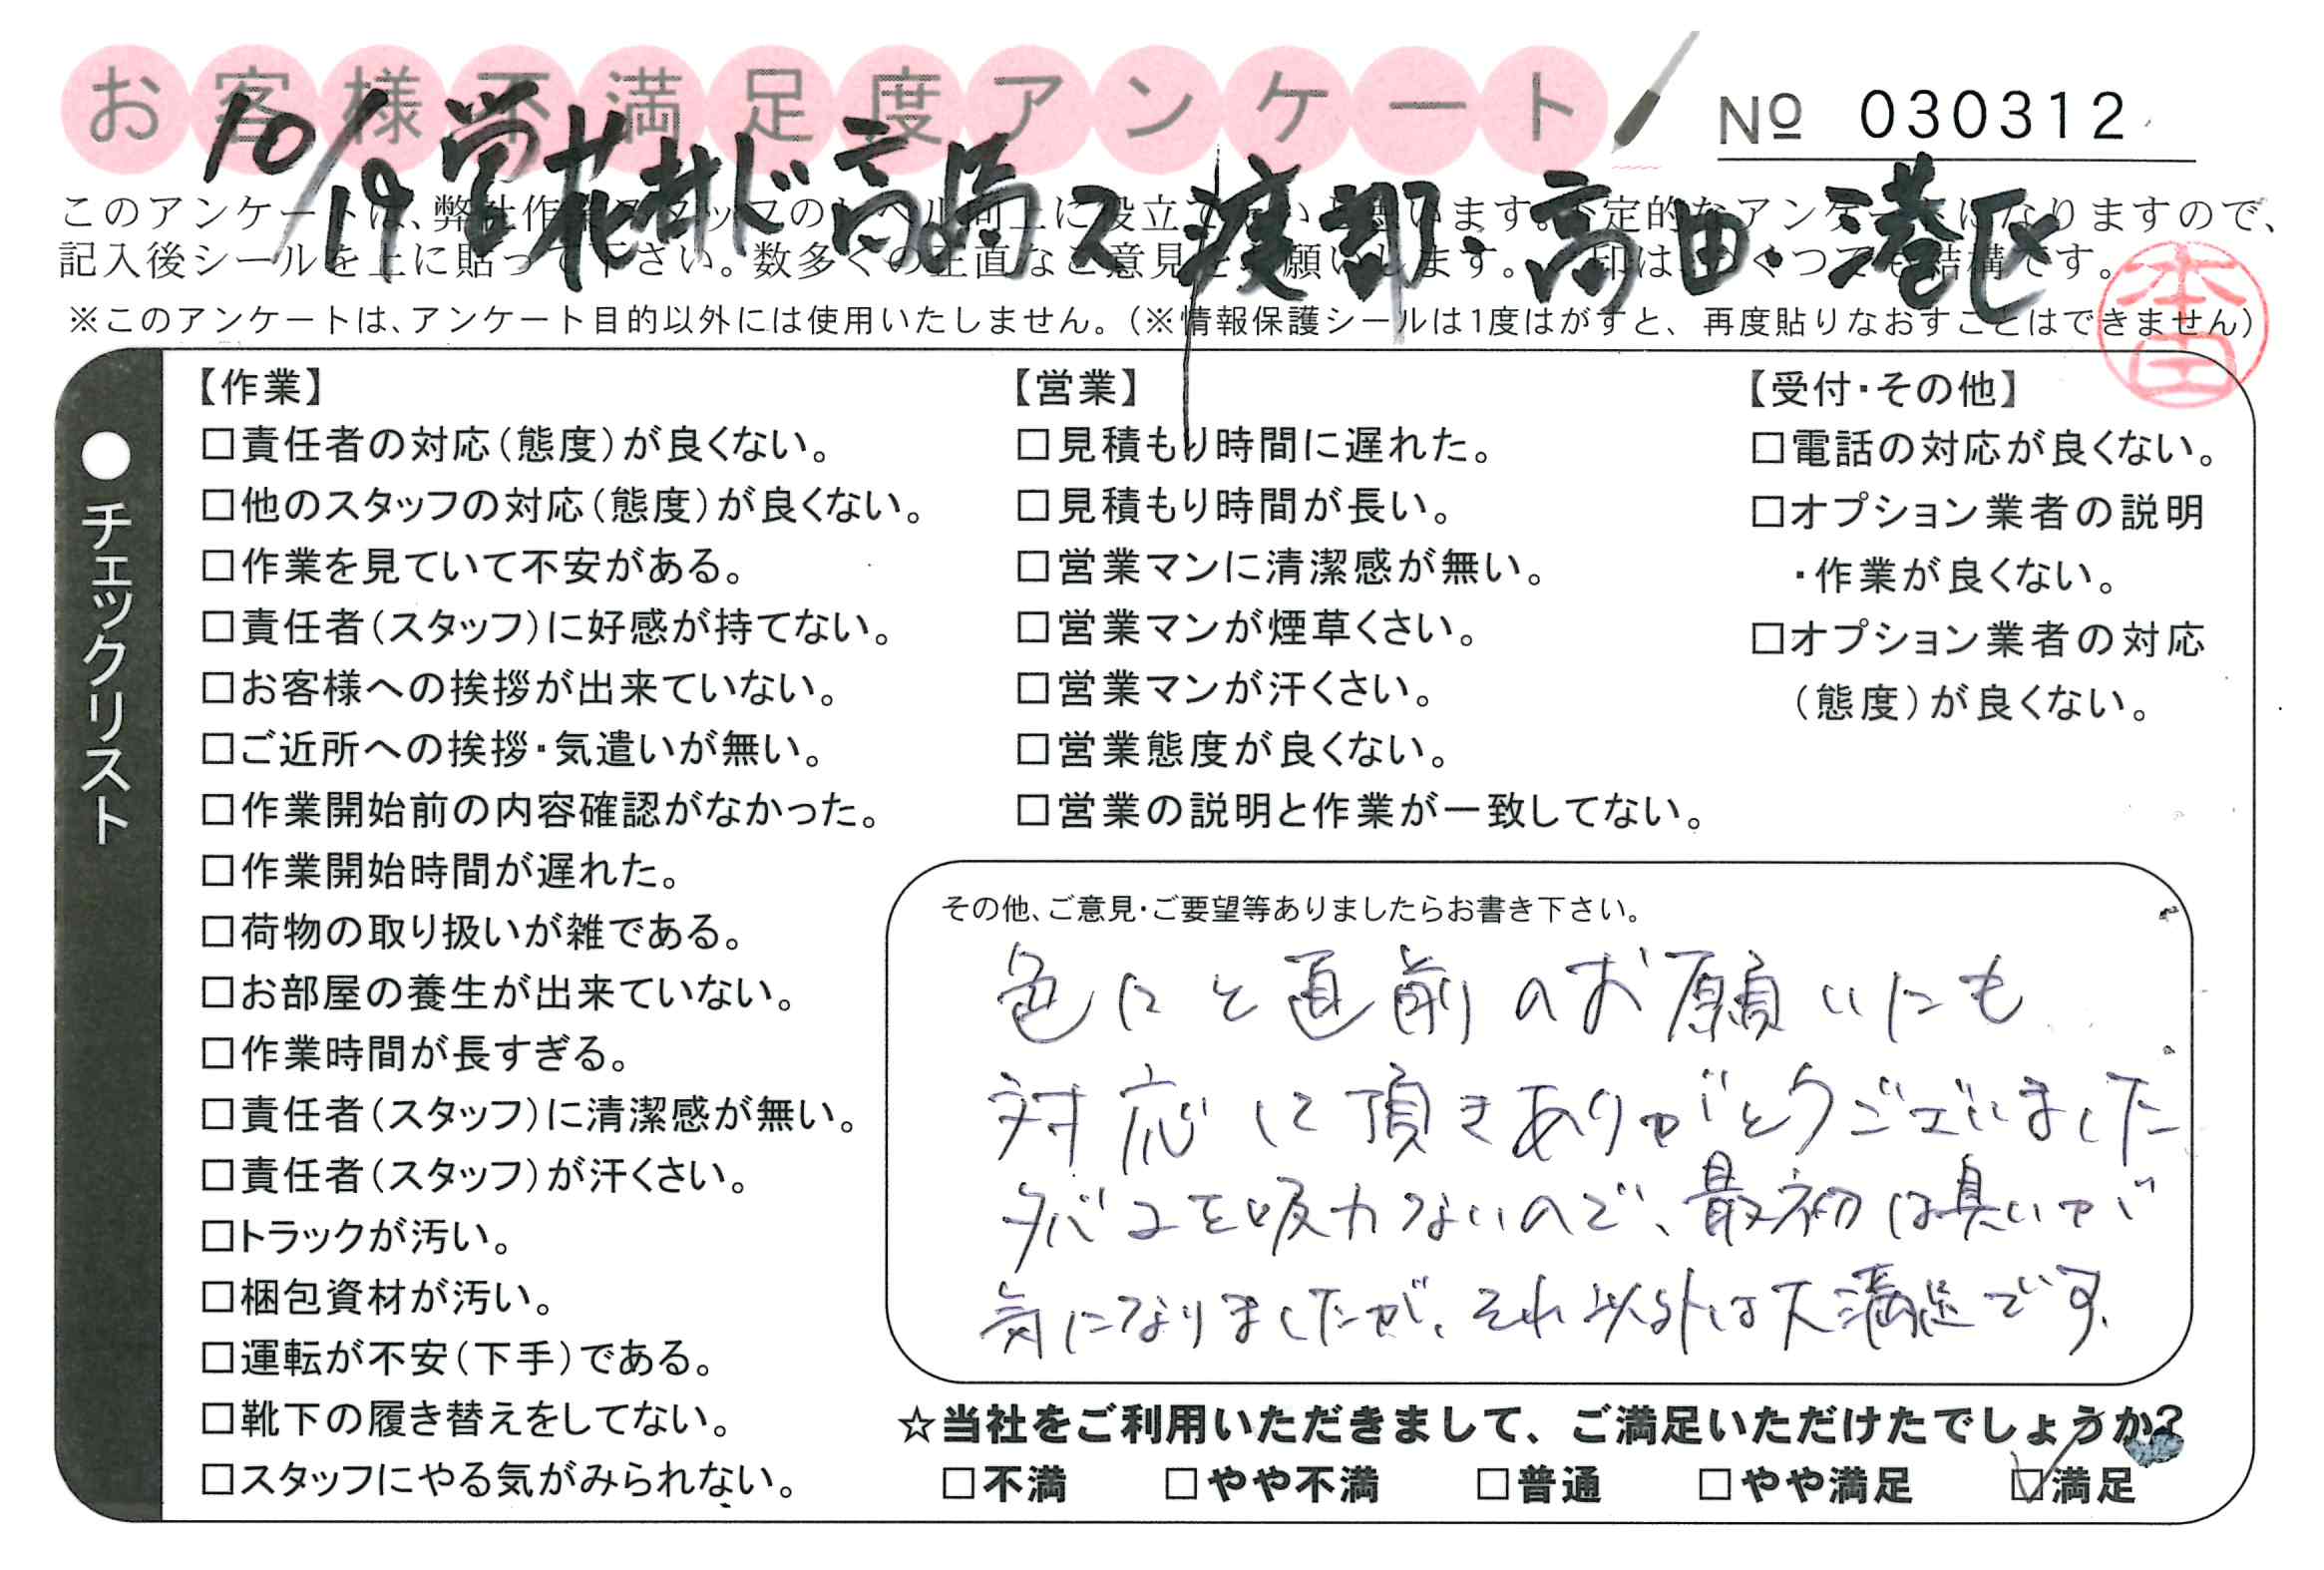 お客様不満足度アンケート
№ 030312
10/19 営 花村 ド 高島 ス 渡部・高田・港区
このアンケートは、弊社作業スタッフのレベル向上に役立てたいと思います。不定的なアンケートになりますので、
記入後シールを上に貼って下さい。数多くの正直なご意見をお願いします。✓印はいくつでも結構です。
※このアンケートは、アンケート目的以外には使用いたしません。(※情報保護シールは1度はがすと、再度貼りなおすことはできません)
本田
●チェックリスト
【作業】
□責任者の対応(態度)が良くない。
□他のスタッフの対応(態度)が良くない。
□作業を見ていて不安がある。
□責任者(スタッフ)に好感が持てない。
□お客様への挨拶が出来ていない。
□ご近所への挨拶・気遣いが無い。
□作業開始前の内容確認がなかった。
□作業開始時間が遅れた。
□荷物の取り扱いが雑である。
□お部屋の養生が出来ていない。
□作業時間が長すぎる。
□責任者(スタッフ)に清潔感が無い。
□責任者(スタッフ)が汗くさい。
□トラックが汚い。
□梱包資材が汚い。
□運転が不安(下手)である。
□靴下の履き替えをしてない。
□スタッフにやる気がみられない。
【営業】
□見積もり時間に遅れた。
□見積もり時間が長い。
□営業マンに清潔感が無い。
□営業マンが煙草くさい。
□営業マンが汗くさい。
□営業態度が良くない。
□営業の説明と作業が一致してない。
【受付・その他】
□電話の対応が良くない。
□オプション業者の説明
・作業が良くない。
□オプション業者の対応
(態度)が良くない。
その他、ご意見・ご要望等ありましたらお書き下さい。
色にと直前のお願いにも
対応して頂きありがとうございました
タバコを吸わないので、最初は臭いが
気になりましたが、それ以外は大満足です。
☆当社をご利用いただきまして、ご満足いただけたでしょうか?
□不満 □やや不満 □普通 □やや満足 ☑満足